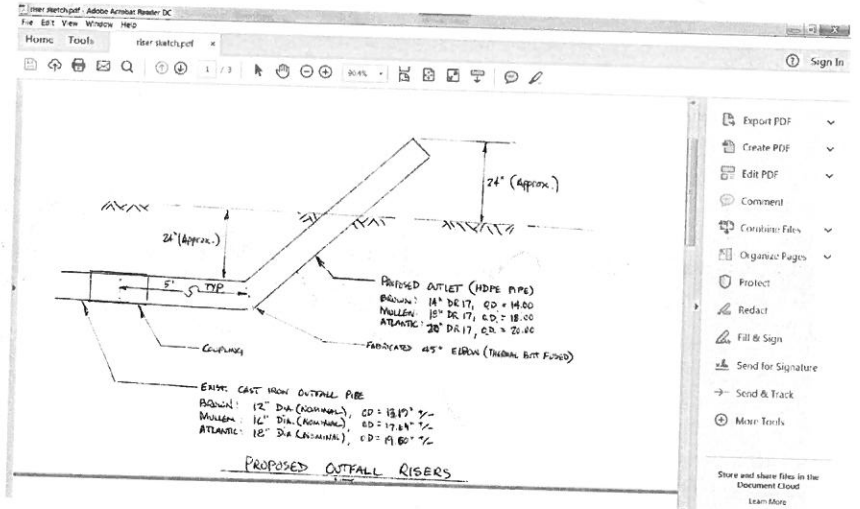 riser sketch.pdf - Adobe Acrobat Reader DC
File Edit View Window Help
Home Tools riser sketch.pdf ×
1 / 3
Sign In
24" (Approx.)
24" (Approx.)
5' TYP
PROPOSED OUTLET (HDPE PIPE)
BROWN: 14" DR 17, O.D. = 14.00
MULLEN: 18" DR 17, O.D. = 18.00
ATLANTIC: 20" DR 17, O.D. = 20.00
COUPLING
FABRICATED 45° ELBOW (THERMAL BUTT FUSED)
EXIST. CAST IRON OUTFALL PIPE
BROWN: 12" DIA. (NOMINAL), OD = 13.19" +/-
MULLEN: 16" DIA. (NOMINAL), OD = +/-
ATLANTIC: 18" DIA. (NOMINAL), OD = 19.50" +/-
PROPOSED OUTFALL RISERS
Export PDF
Create PDF
Edit PDF
Comment
Combine Files
Organize Pages
Protect
Redact
Fill & Sign
Send for Signature
Send & Track
More Tools
Store and share files in the
Document Cloud
Learn More